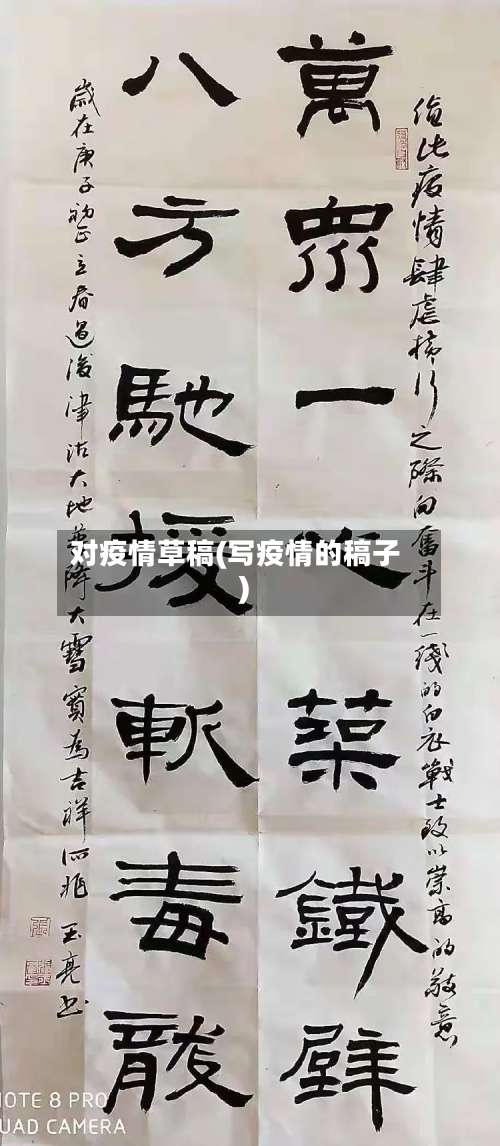 值此疫情肆虐橫行之際向奮斗在一綫的白衣戰士致以崇高的敬意
萬眾一心築鐵壁
八方馳援斬毒龍
歲在庚子初正立春過後津沽大地普降大雪實為吉祥兆 王亮书
对疫情草稿(写疫情的稿子
)
NOTE 8 PRO
UAD CAMERA